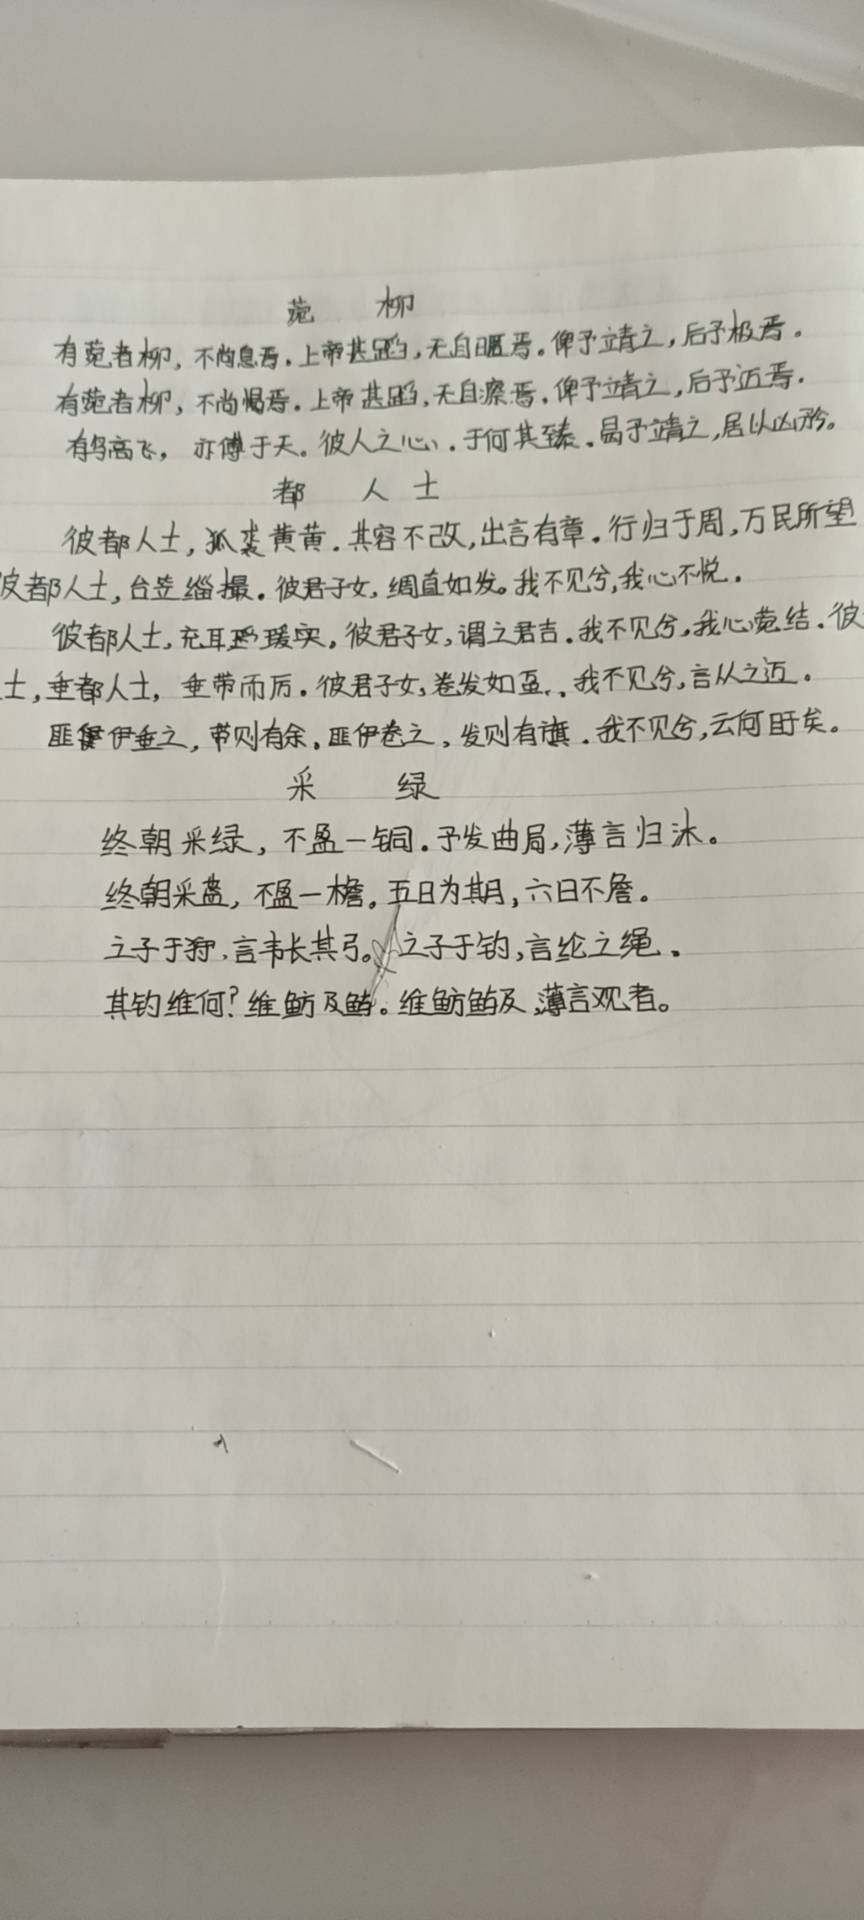 菀 柳
有菀者柳，不尚息焉。上帝甚蹈，无自暱焉。俾予靖之，后予极焉。
有菀者柳，不尚愒焉。上帝甚蹈，无自瘵焉。俾予靖之，后予迈焉。
有鸟高飞，亦傅于天。彼人之心，于何其臻。曷予靖之，居以凶矜。
都 人 士
彼都人士，狐裘黄黄。其容不改，出言有章。行归于周，万民所望
彼都人士，台笠缁撮。彼君子女，绸直如发。我不见兮，我心不悦。
彼都人士，充耳琇实，彼君子女，谓之君吉。我不见兮，我心菀结。彼
士，垂都人士，垂带而厉。彼君子女，卷发如虿。我不见兮，言从之迈。
匪伊垂之，带则有余。匪伊卷之，发则有旟。我不见兮，云何盱矣。
采 绿
终朝采绿，不盈一锔。予发曲局，薄言归沐。
终朝采蓝，不盈一檐。五日为期，六日不詹。
之子于狩，言韦长其弓。之子于钓，言纶之绳。
其钓维何？维鲂及鱮。维鲂鱮及，薄言观者。